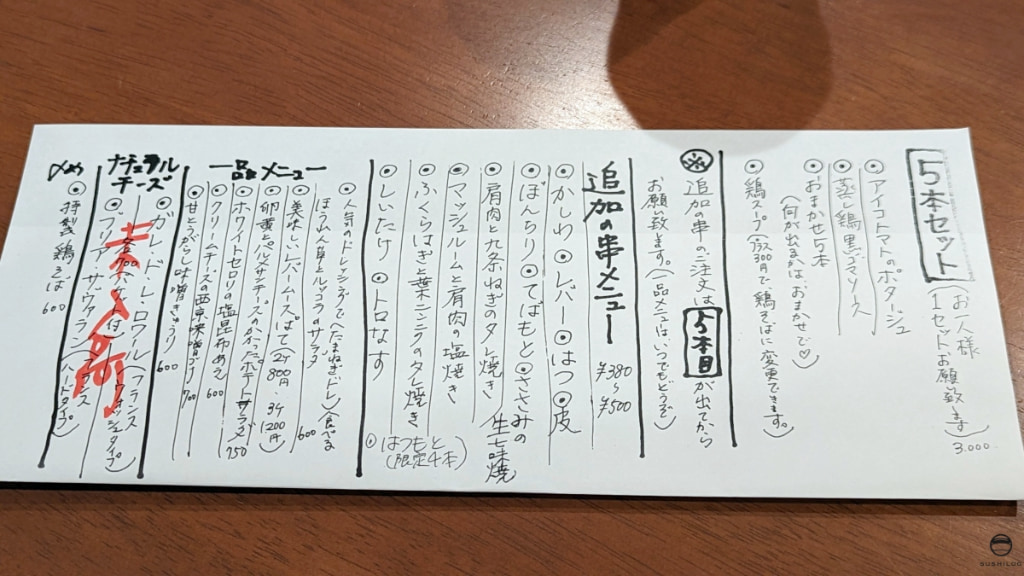 5本セット
(お一人様
1セットお願い致します)
3.000
⦿アイコトマトのポタージュ
⦿蒸し鶏黒ゴマソース
⦿おまかせ5本
(何が出るかは、おまかせで♡)
⦿鶏スープ
プラス300円で、鶏そばに変更できます。)
※追加の串のご注文は、5本目が出てから
お願い致します。(一品メニューは、いつでもどうぞ)
追加の串メニュー ¥380〜¥500
⦿かしわ⦿レバー⦿はつ⦿皮
⦿ぼんちり⦿てばもと⦿ささみの生七味焼
⦿肩肉と九条ねぎのタレ焼き
⦿マッシュルームと肩肉の塩焼き
⦿ふくらはぎと葉ニンニクのタレ焼き
⦿しいたけ ⦿トロなす
⦿はつもと
(限定4本)
一品メニュー
⦿人気のドレッシングで(たまねぎドレ)食べる
ほうれん草とルッコラのサラダ 600
⦿美味しいレバームースぱて 2ケ800円、3ケ1200円)
⦿卵黄とペルメザンチーズのかかったポテトサラダ 750
⦿ホワイトセロリの塩昆布あえ 600
⦿クリームチーズの西京味噌づけ 700
⦿甘とうがらし味噌きゅうり 600
ナチュラル
チーズ
⦿ガレ・ド・ロワール(フランス ウォッシュタイプ)
⦿ブリア・サヴァラン
〆め
⦿特製鶏そば 600